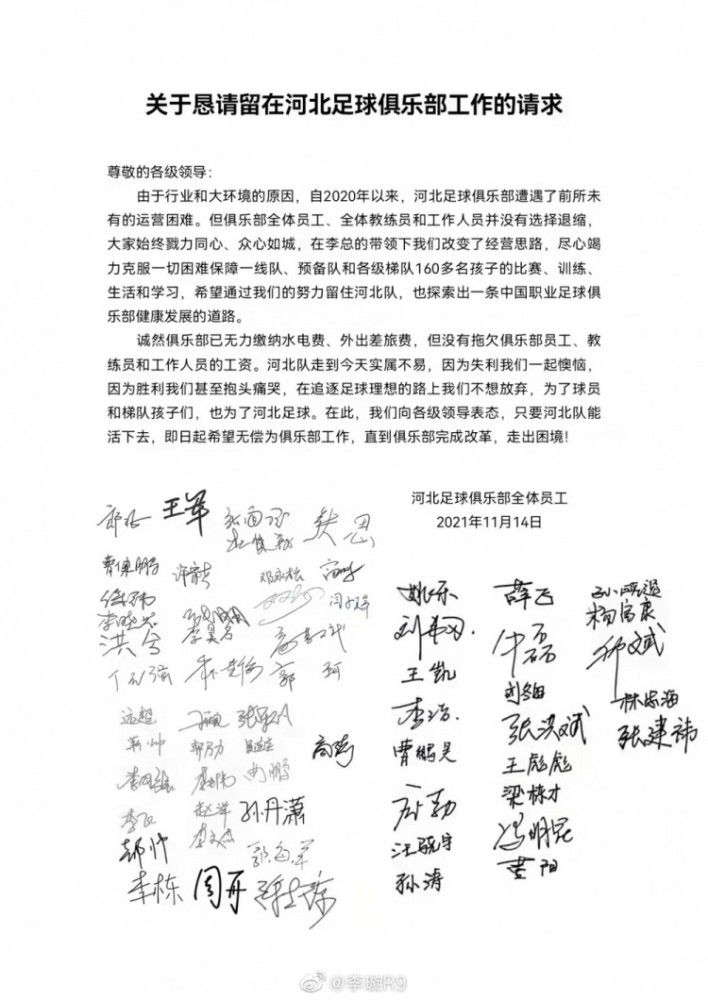 关于恳请留在河北足球俱乐部工作的请求
尊敬的各级领导：
由于行业和大环境的原因，自2020年以来，河北足球俱乐部遭遇了前所未
有的运营困难。但俱乐部全体员工、全体教练员和工作人员并没有选择退缩，
大家始终戮力同心、众心如城，在李总的带领下我们改变了经营思路，尽心竭
力克服一切困难保障一线队、预备队和各级梯队160多名孩子的比赛、训练、
生活和学习，希望通过我们的努力留住河北队，也探索出一条中国职业足球俱
乐部健康发展的道路。
诚然俱乐部已无力缴纳水电费、外出差旅费，但没有拖欠俱乐部员工、教
练员和工作人员的工资。河北队走到今天实属不易，因为失利我们一起懊恼，
因为胜利我们甚至抱头痛哭，在追逐足球理想的路上我们不想放弃，为了球员
和梯队孩子们，也为了河北足球。在此，我们向各级领导表态，只要河北队能
活下去，即日起希望无偿为俱乐部工作，直到俱乐部完成改革，走出困境！
河北足球俱乐部全体员工
2021年11月14日
王军
姚乐
薛飞
杨富康
王凯
李浩
张洪斌
林志海
张建祎
曹鹏昊
王彪彪
梁栋才
汪晓宇
冯明昆
黄阳
孙涛
孙丹潇
郭海军
李栋
周开
@李璇R9